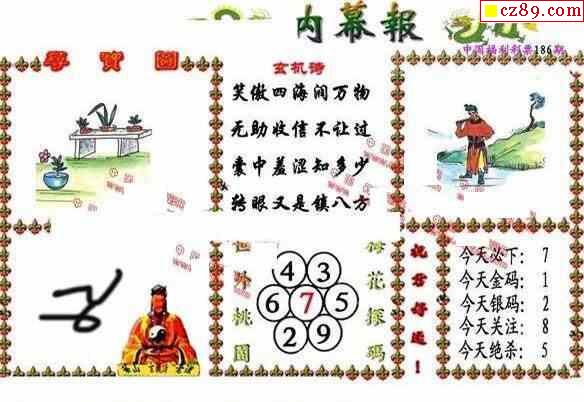 cz89.com
内幕報
中国福利彩票186期
寻宝圖
玄机诗
笑傲四海润万物
无助收信不让过
囊中羞涩知多少
转眼又是镇八方
桃園
梅花探码
4 3
6 7 5
2 9
祝君好运!
今天必下: 7
今天金码: 1
今天银码: 2
今天关注: 8
今天绝杀: 5